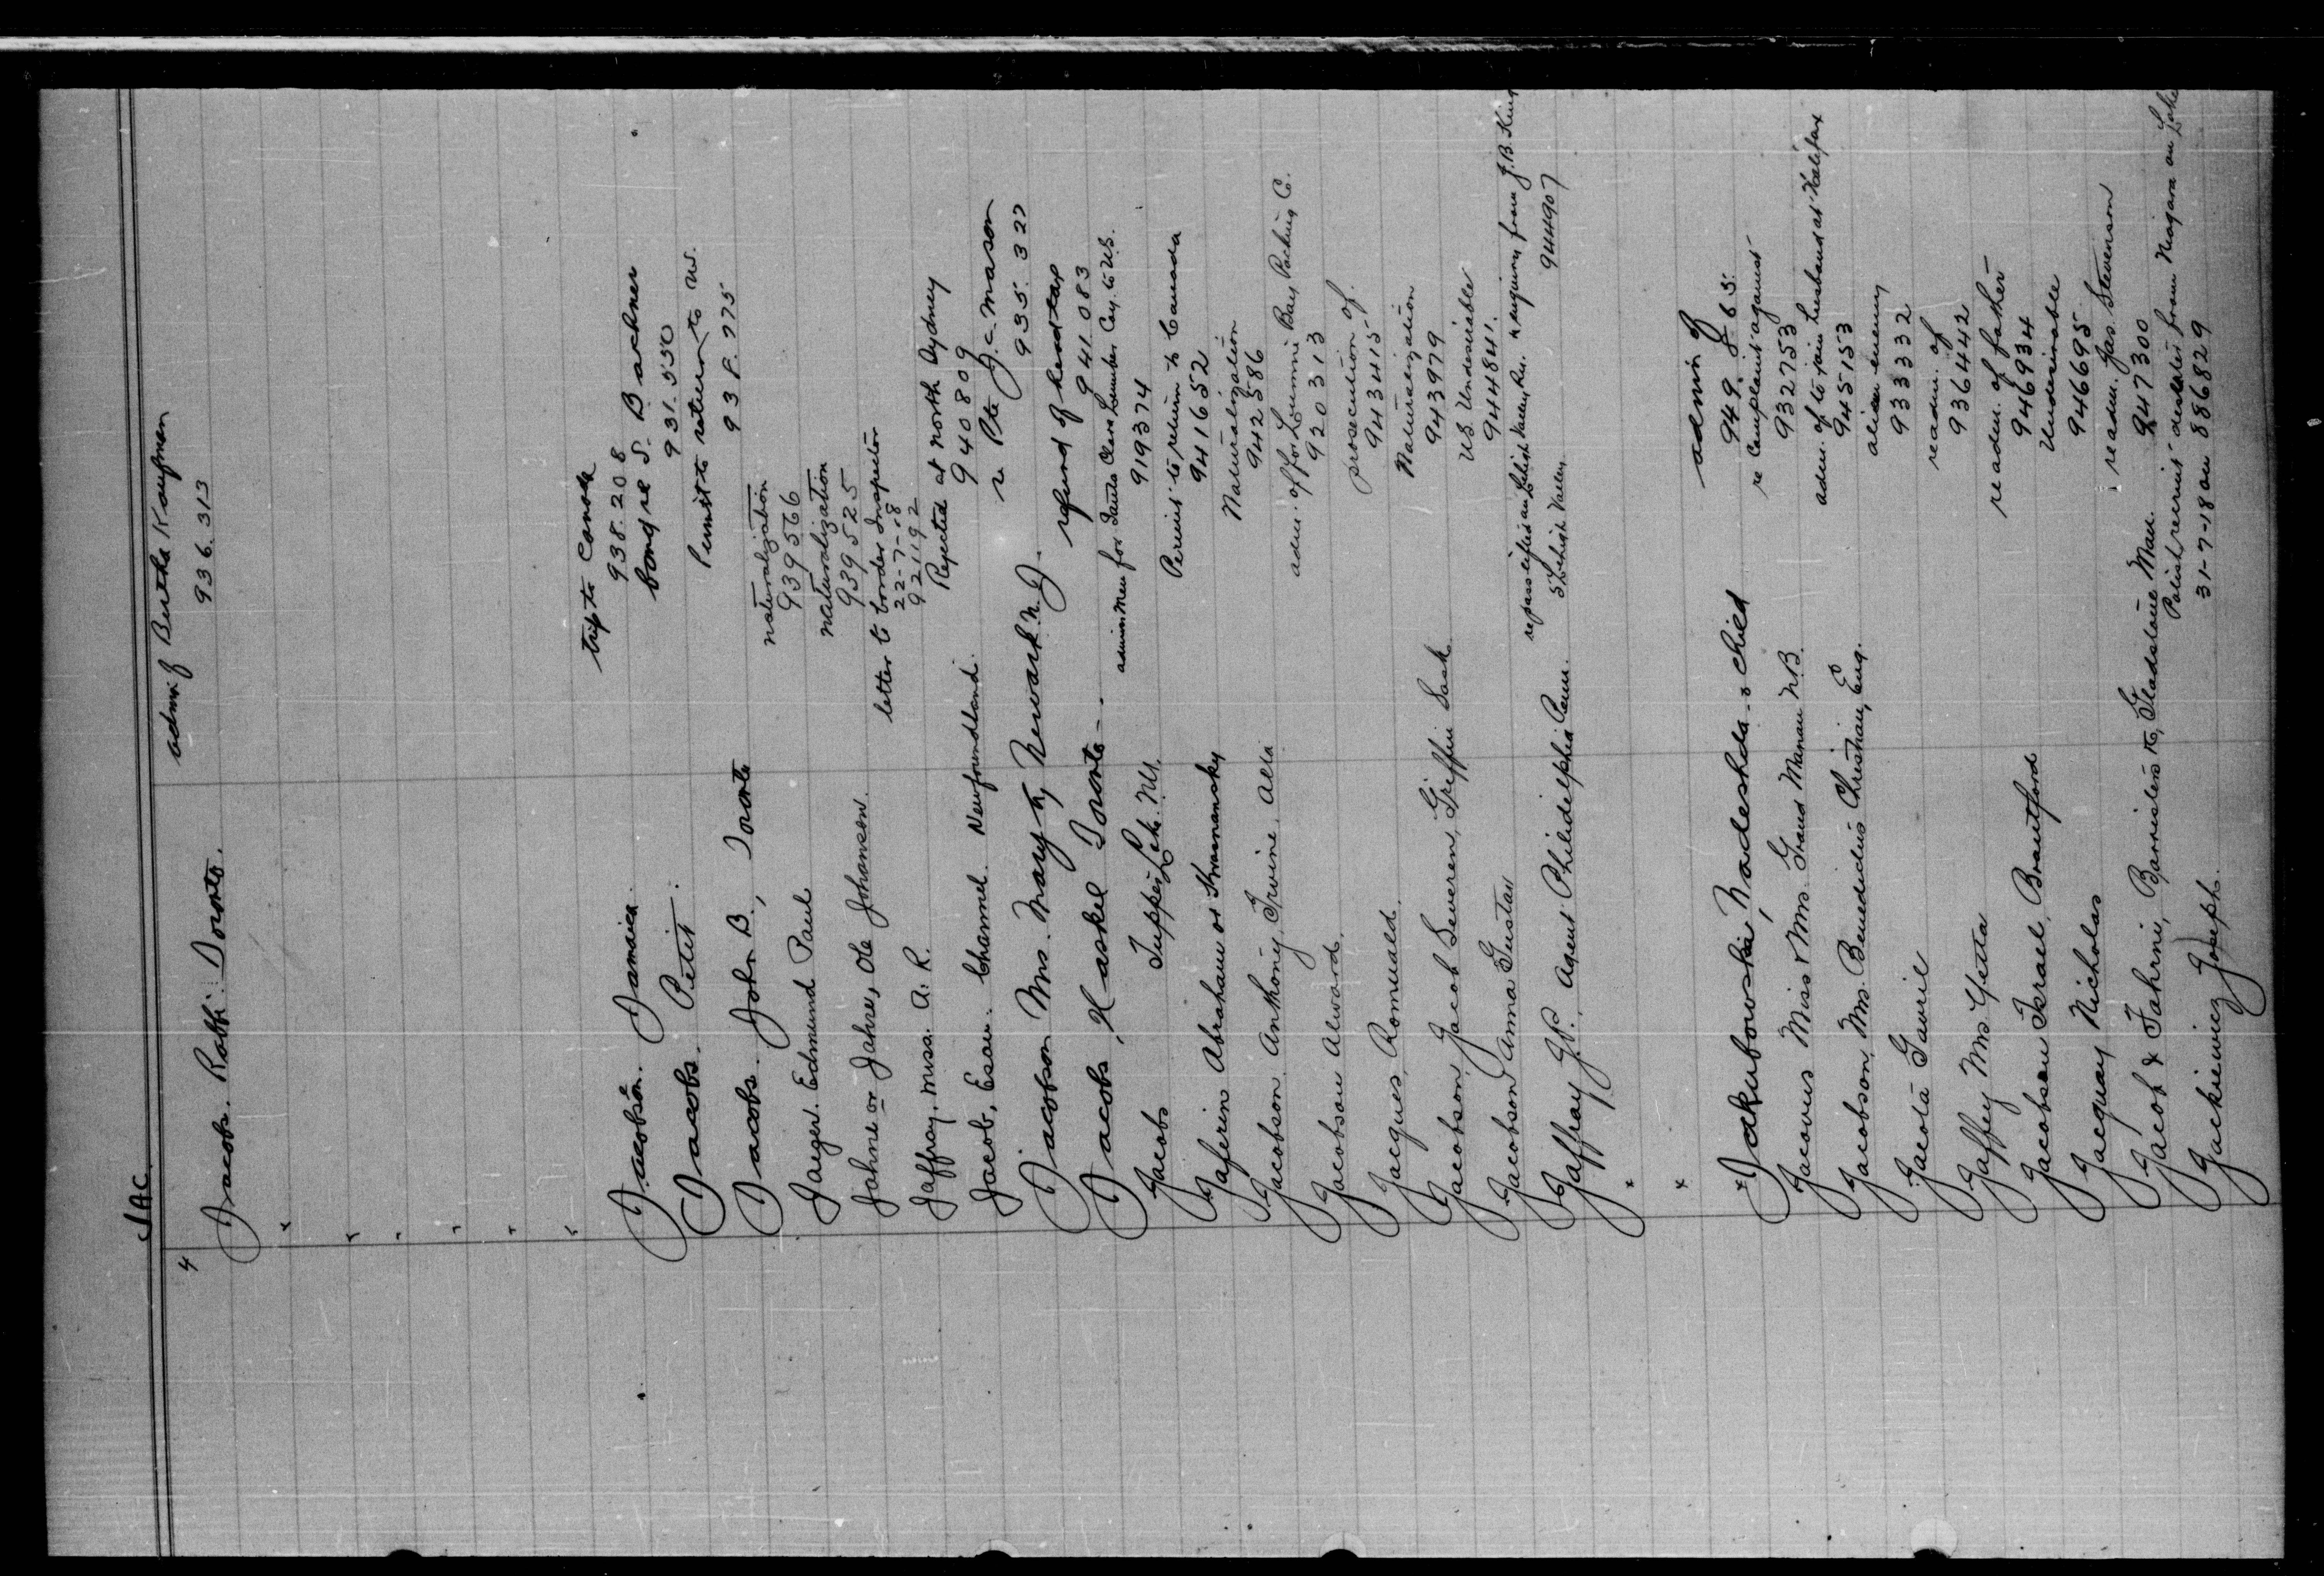 JAC
4
Jacobs. Rabbi. Toronto. admn. of Bertha Kaufman
936.313
Jacobson. Jamaica. trip to Canada
938.208
Jacobs. Petit. bond re S. Backner
931.550
Jacobs. John B., Toronto Permit to return to U.S.
938.275
Jaeger. Edmund Paul naturalization
939566
Jahne or Jahre, Ole Johansen. naturalization
939525
Jaffray, Miss. A. R. letter to border Inspector
22-7-18
921192
Jacob, Esau. Channel. Newfoundland. Rejected at North Sydney
940809
Jacobson Mrs. Mary, Newark N.J. re Pte J. C. Mason
935.327
Jacobs, Haskel Toronto refund of head tax
941.083
Jacobs Tupper Lake. N.Y. admin men for Lumber Coy. to U.S.
919374
Jaferin Abraham or Permit to return to Canada
941652
Jacobson. Anthony, Irvine, Alta Naturalization
942586
Jacobson Alward. adm. of for Lummi Bay Packing Co.
920313
Jacques, Romuald. prosecution of.
943415
Jacobson, Jacob Severen, Griffin Sask Naturalization
943979
Jacobson Anna Gustav US Undesirable
944841.
Jaffray J.P., Agent Philidelphia Penn. re passes for Lehigh Valley Rw. enquiry from J.B.
5 Lehigh Valley 944907
" 
"
Jakubowski, Nadeshda & child admn of
949.865.
Jacovus Miss & Mrs. Grand Manan N.B. re complaint against
932753
Jacobson, Mrs. Benedicus Christian, Eng. adm. of to join husband at Halifax
945153
Jacota Gavril alien enemy
933332
Jaffey Mrs Yetta readm. of
936442
Jacobson Israel, Brantford readm. of father
946934
Jacquay Nicholas Undesirable
946695
Jacob & Fahrni, Barristers &c, Gladstone Man. readm. Jas. Stevenson
947300
Jackiewicz Joseph. Polish recruit deserter from Niagara on Lake
31-7-18 on 886829